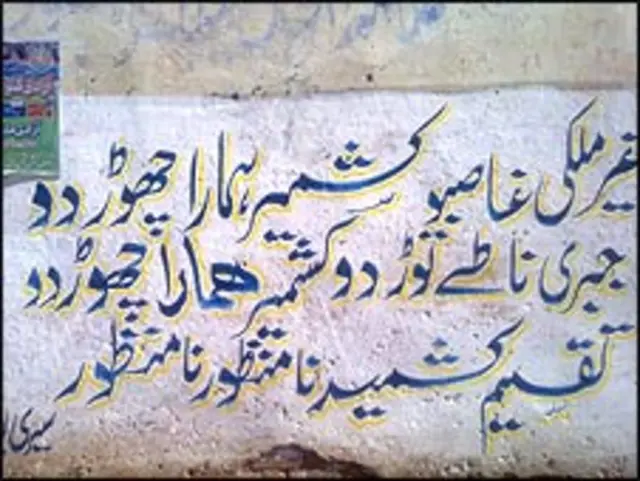 غیر ملکی غاصبو کشمیر ہمارا چھوڑ دو
جبری ناطے توڑ دو کشمیر ھمارا چھوڑ دو
تقسیم کشمیر نا منظور نا منظور